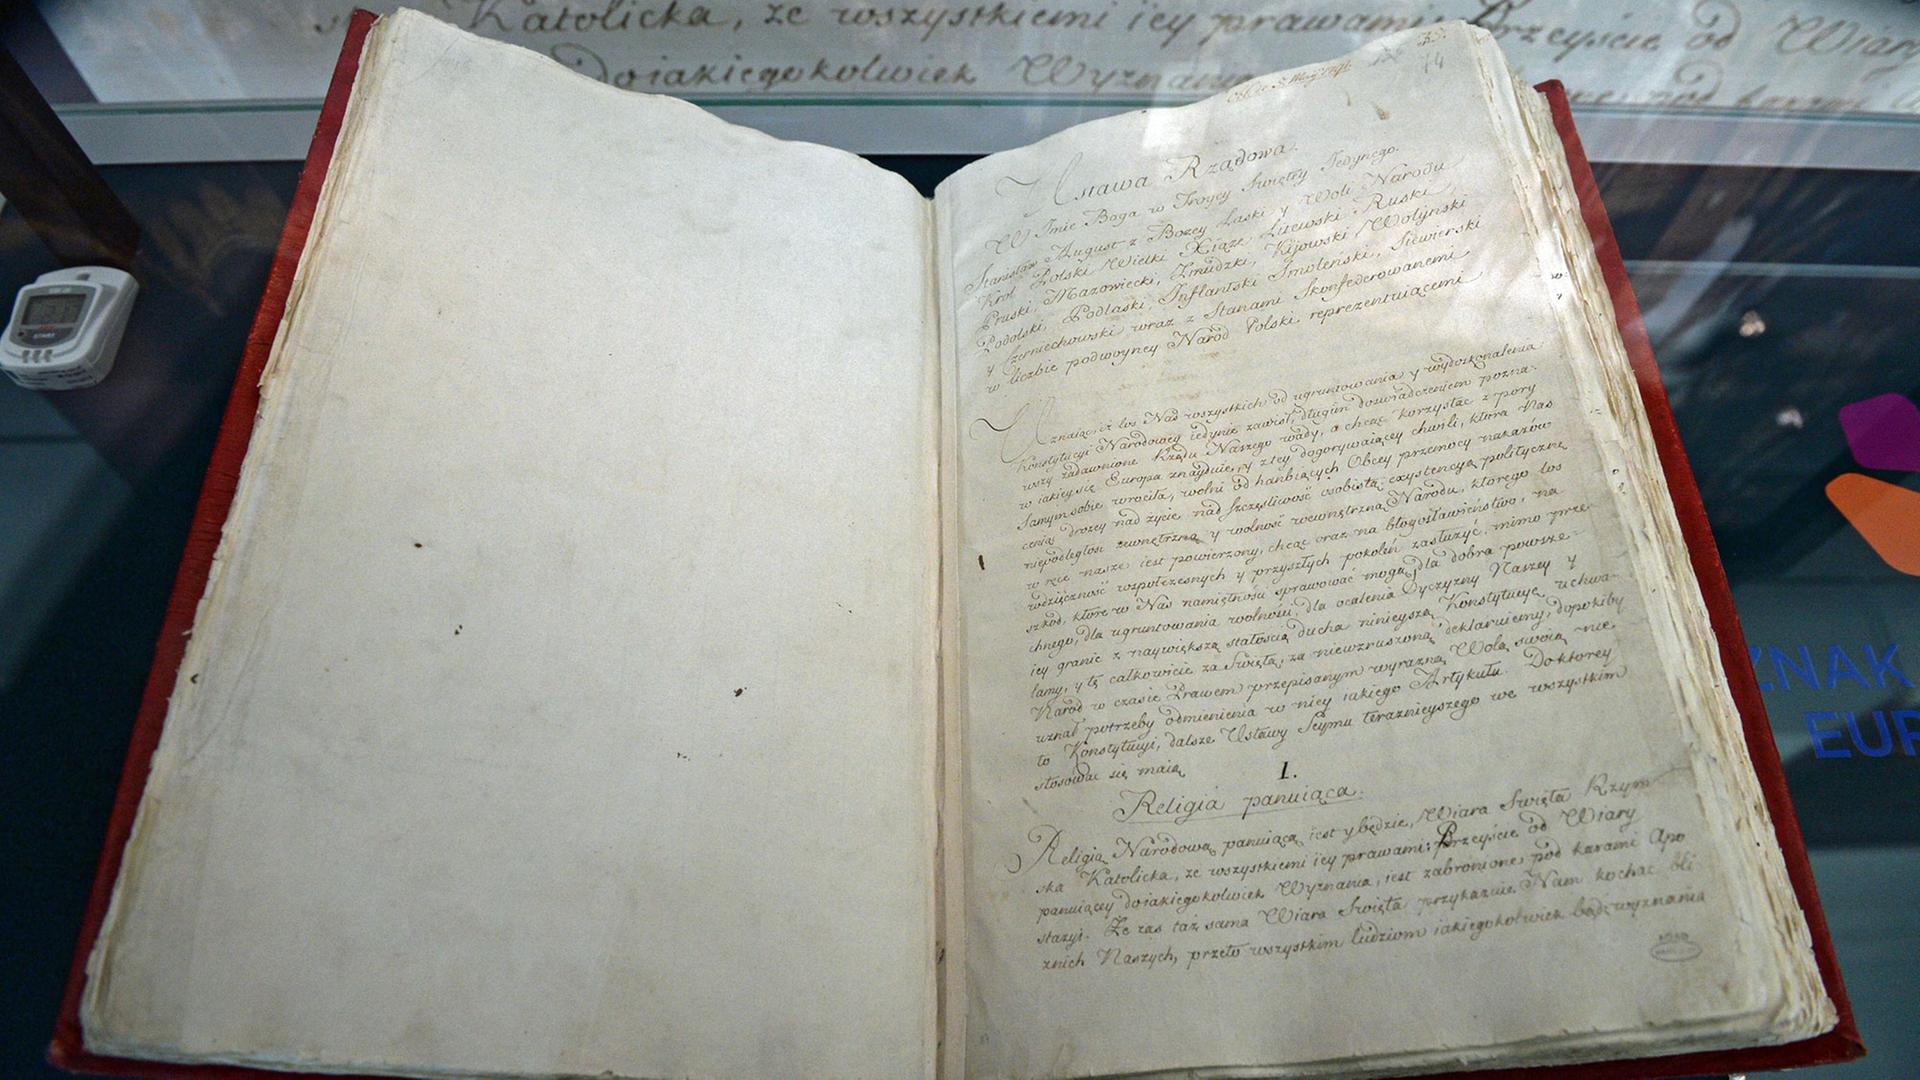 Katolicka, ze wszystkiemi iey prawami. Przeyście od Wiary
doiakiegokolwiek Wyznania
44
Ustawa Rządowa.
W Imie Boga w Troycy Swiętey Jedynego.
Stanisław August z Bozey Łaski y Woli Narodu
Krol Polski Wielki Xiąze Litewski Ruski
Pruski, Mazowiecki, Zmudzki, Kijowski Wołyński
Podolski, Podlaski, Inflantski Smolenski, Siewierski
y Czerniechowski wraz z Stanami Skonfederowanemi
w liczbie podwoyney Narod Polski reprezentuiącemi
Uznaiąc, iż los Nas wszystkich od ugruntowania y wydoskonalenia
Konstytucyi Narodowey iedynie zawisł, długim doswiadczeniem pozna-
wszy zadawnione Rządu Naszego wady, a chcąc korzystać z pory
w iakiey się Europa znayduie, y z tey dogorywaiącey chwili, ktora Nas
Samym sobie wrociła, wolni od hanbiących Obcey przemocy nakazów
ceniąc drozey nad zycie nad szczęsliwość osobistą, exystencyą polityczną
niepodległość zewnętrzną y wolność wewnętrzną Narodu, ktorego los
w ręce nasze iest powierzony, chcąc oraz na błogosławieństwo, na
wdzięczność wspołczesnych y przyszłych pokoleń zasłużyć, mimo prze-
szkod, ktore w Nas namiętności sprawować mogą, dla dobra powsze-
chnego, dla ugruntowania wolności, dla ocalenia Oyczyzny Naszey y
iey granic z naywiększą stałoscią ducha ninieyszą Konstytucyę uchwa-
lamy, y tę całkowicie za Swiętą, za niewzruszoną deklaruiemy, dopokiby
Narod w czasie Prawem przepisanym wyrazną Wolą swoią nie
uznał potrzeby odmienienia w niey iakiego Artykułu. Do ktorey
to Konstytucyi, dalsze Ustawy Seymu teraznieyszego we wszystkim
stosować się maią
I.
Religia panuiąca.
Religią Narodową panuiącą iest y będzie, Wiara Swięta Rzym
ska Katolicka, ze wszystkiemi iey prawami; Przeyście od Wiary
panuiącey doiakiegokolwiek Wyznania, iest zabronione pod karami Apo
stazyi. Ze zas taż sama Wiara Swięta przykazuie Nam kochać bli
znich Naszych, przeto wszystkim ludziom iakiegokolwiek bądź wyznania
START
ZNAK
EUR